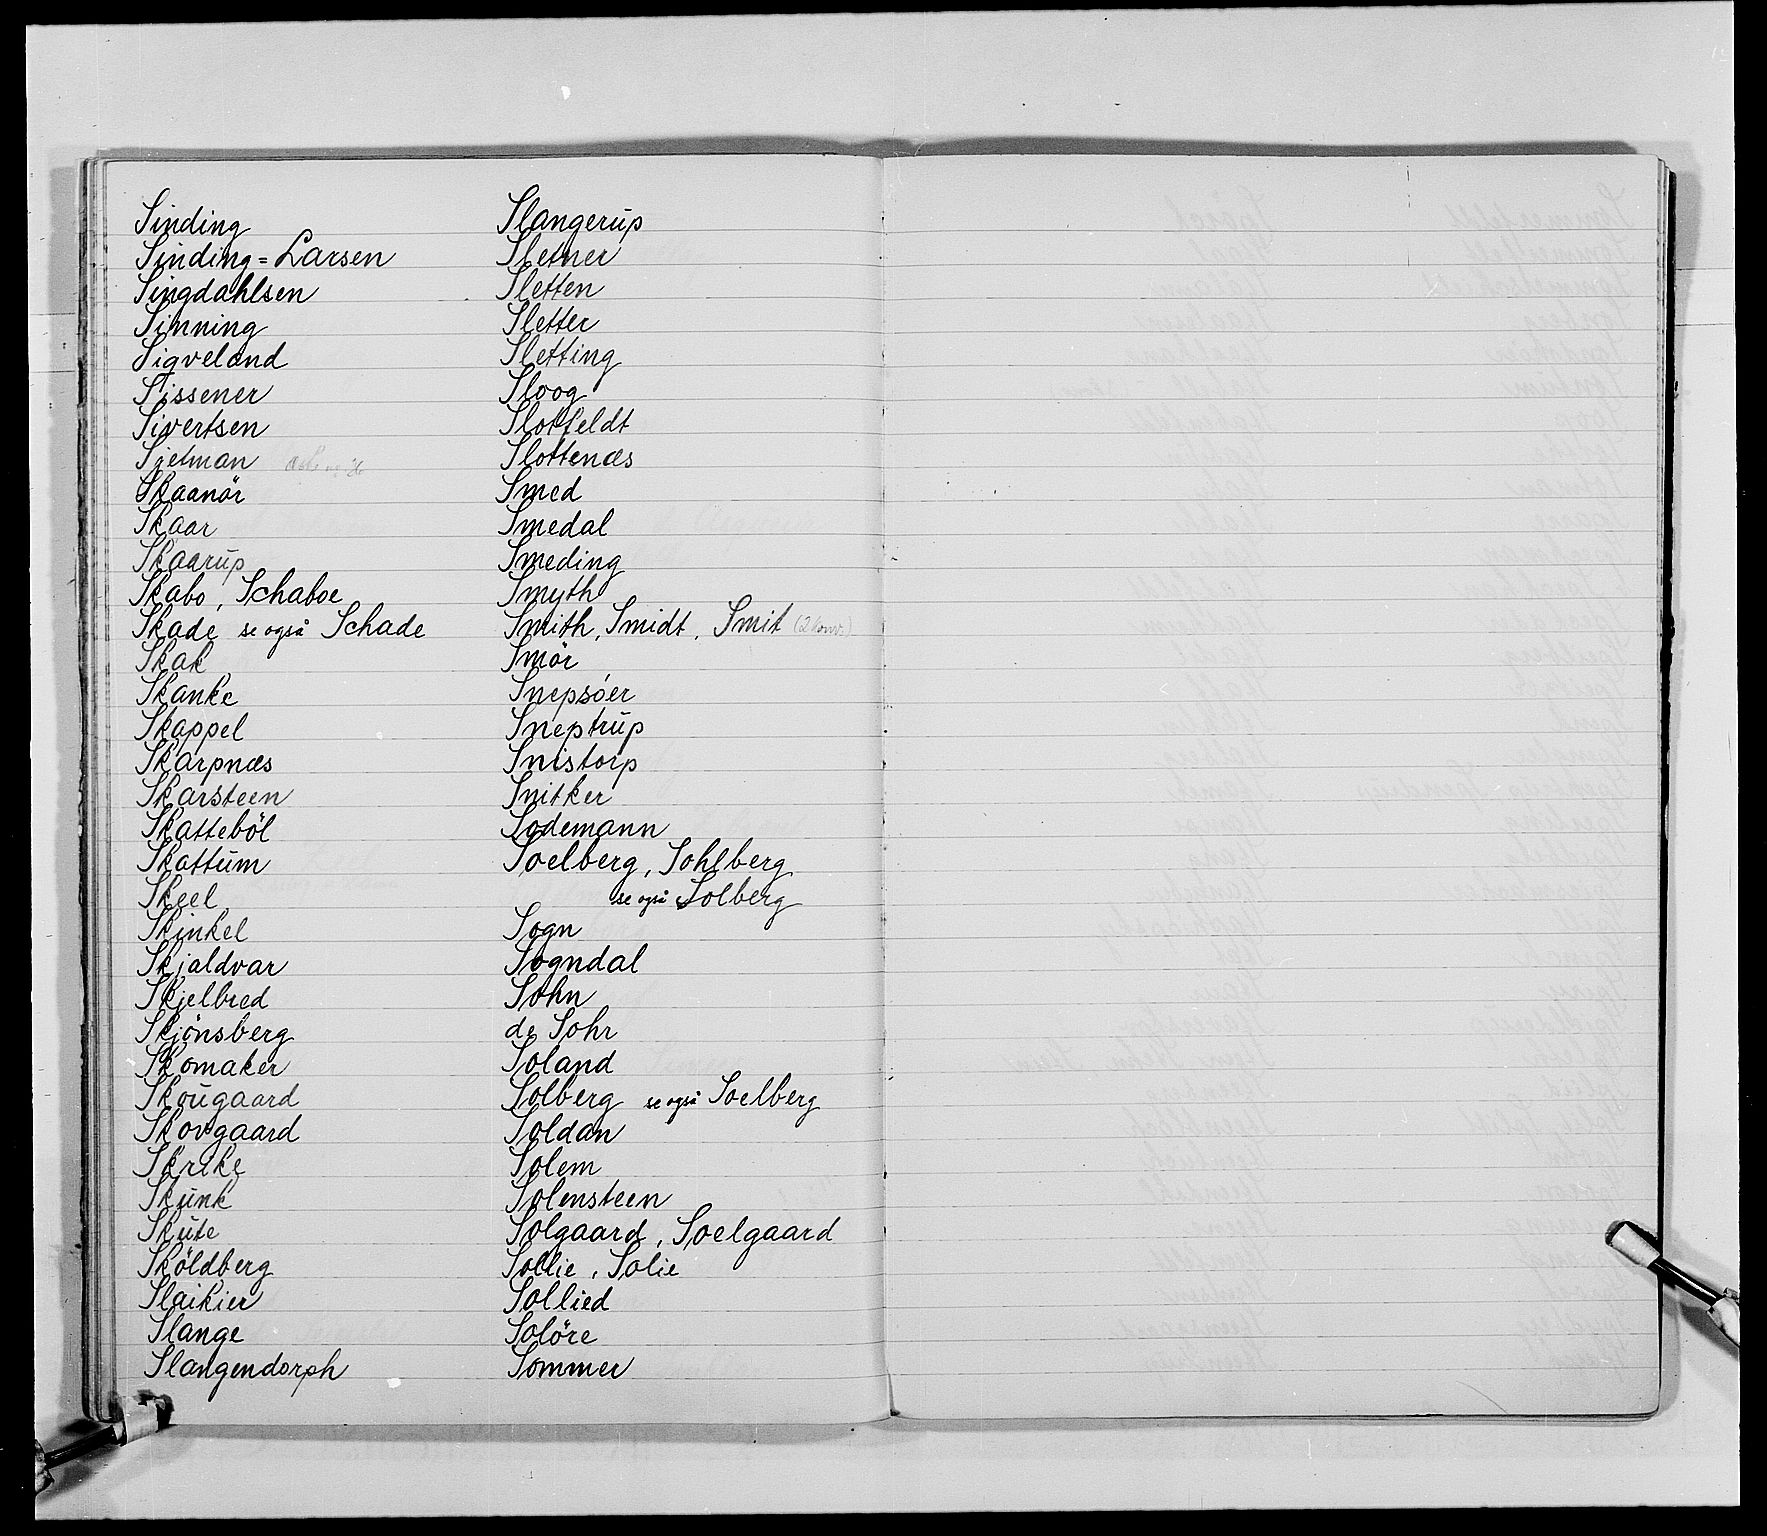 Sinding
Sinding=Larsen
Singdahlsen
Sinning
Sigveland
Sissener
Sivertsen
Sjetman
Skaanör
Skaar
Skaarup
Skabo, Schaboe
Skade se også Schade
Skak
Skanke
Skappel
Skarpnæs
Skarsteen
Skatteböl
Skattum
Skeel
Skinkel
Skjaldvar
Skjelbred
Skjönsberg
Skomaker
Skougaard
Skovgaard
Skrike
Skunk
Skute
Sköldberg
Slaikier
Slange
Slangendorph
Slangerup
Sletner
Sletten
Sletter
Sletting
Sloog
Slotfeldt
Slottenæs
Smed
Smedal
Smeding
Smyth
Smith, Smidt, Smit
Smör
Snepsöer
Sneptrup
Snistorp
Snitker
Sodemann
Soelberg, Sohlberg
se også Solberg
Sogn
Sogndal
Sohn
de Sohr
Soland
Solberg se også Soelberg
Soldan
Solem
Solensteen
Solgaard, Soelgaard
Sollie, Solie
Sollied
Solöre
Sommer